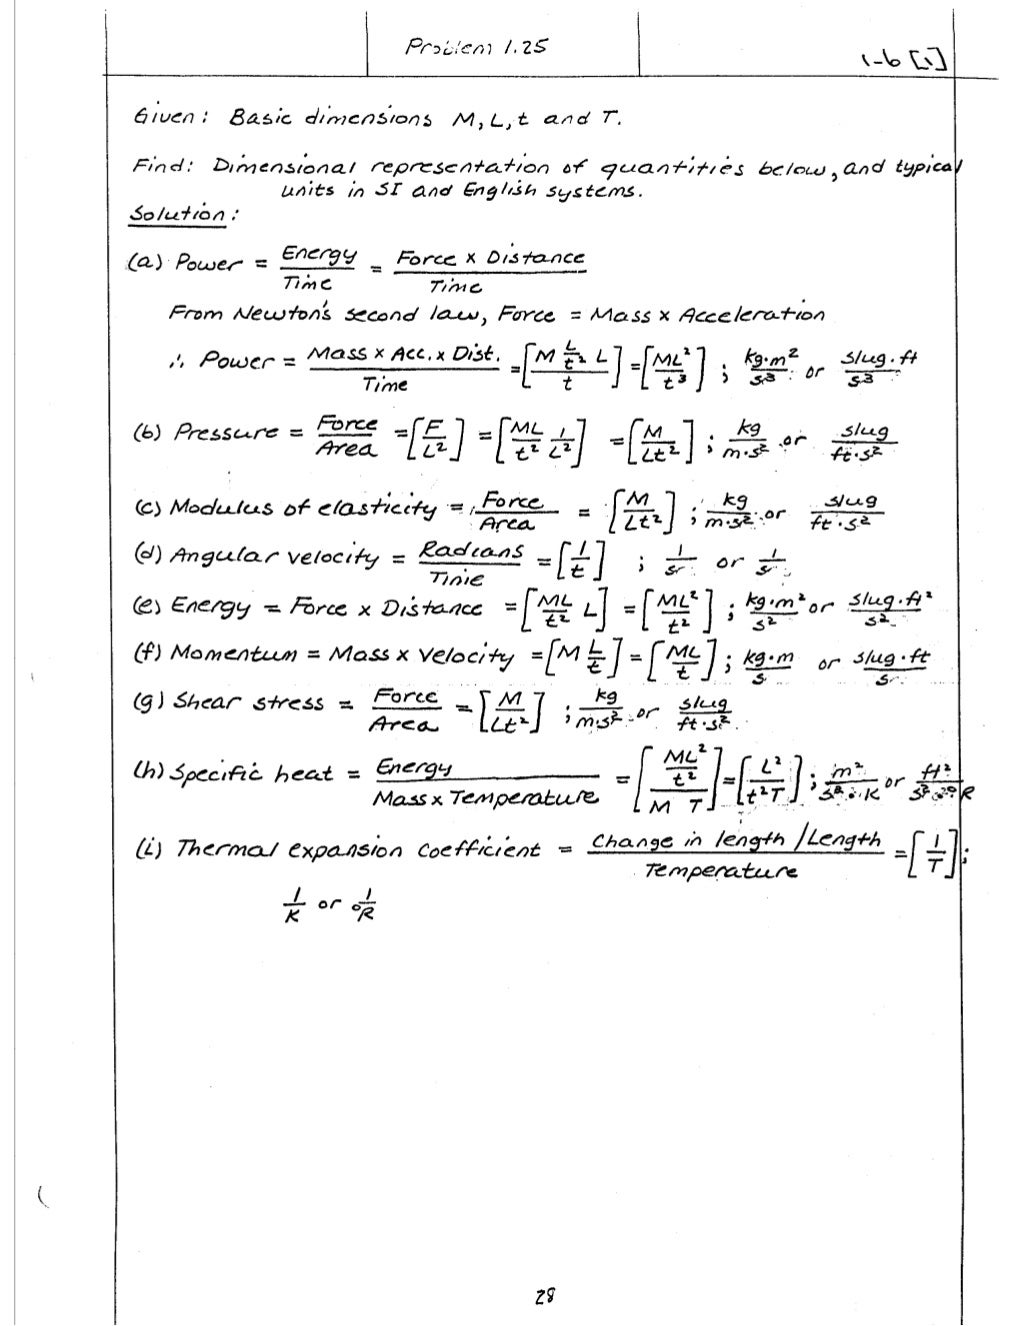 Problem 1.25
1-6 [1]
Given: Basic dimensions M, L, t and T.
Find: Dimensional representation of quantities below, and typical
units in SI and English systems.
Solution:
(a) Power = Energy/Time = Force x Distance/Time
From Newton's second law, Force = Mass x Acceleration
∴ Power = Mass x Acc. x Dist./Time = [M L/t² L / t] = [ML²/t³] ; kg·m²/s³ or slug·ft/s³
(b) Pressure = Force/Area = [F/L²] = [ML/t² 1/L²] = [M/Lt²] ; kg/m·s² or slug/ft·s²
(c) Modulus of elasticity = Force/Area = [M/Lt²] ; kg/m·s² or slug/ft·s²
(d) Angular velocity = Radians/Time = [1/t] ; 1/s or 1/s
(e) Energy = Force x Distance = [ML/t² L] = [ML²/t²] ; kg·m²/s² or slug·ft²/s²
(f) Momentum = Mass x Velocity = [M L/t] = [ML/t] ; kg·m/s or slug·ft/s
(g) Shear stress = Force/Area = [M/Lt²] ; kg/m·s² or slug/ft·s²
(h) Specific heat = Energy/Mass x Temperature = [ML²/t² / M T] = [L²/t²T] ; m²/s²·K or ft²/s²·°R
(i) Thermal expansion coefficient = Change in length/Length / Temperature = [1/T] ;
1/K or 1/°R
28